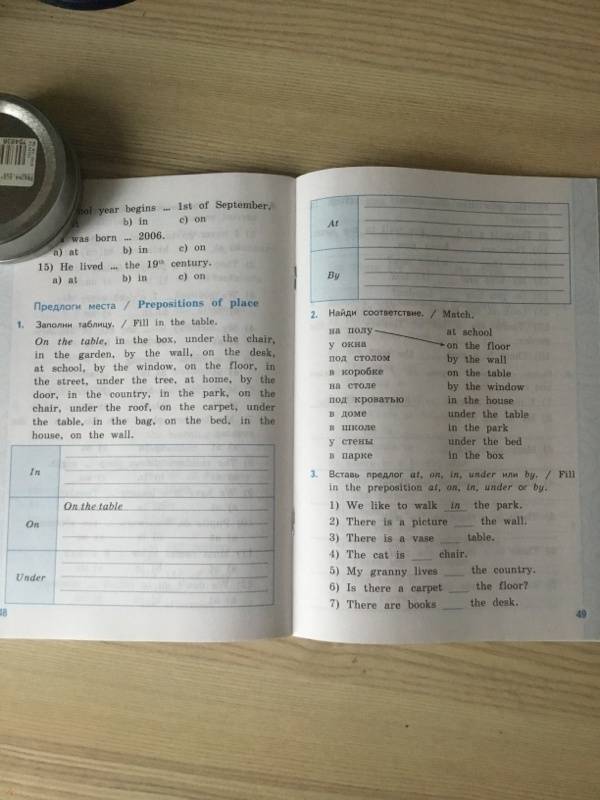 year begins ... 1st of September.
b) in c) on
was born ... 2006.
a) at b) in c) on
15) He lived ... the 19th century.
a) at b) in c) on
Предлоги места / Prepositions of place
1. Заполни таблицу. / Fill in the table.
On the table, in the box, under the chair,
in the garden, by the wall, on the desk,
at school, by the window, on the floor, in
the street, under the tree, at home, by the
door, in the country, in the park, on the
chair, under the roof, on the carpet, under
the table, in the bag, on the bed, in the
house, on the wall.
In
On the table
On
Under
At
By
2. Найди соответствие. / Match.
на полу at school
у окна on the floor
под столом by the wall
в коробке on the table
на столе by the window
под кроватью in the house
в доме under the table
в школе in the park
у стены under the bed
в парке in the box
3. Вставь предлог at, on, in, under или by. / Fill
in the preposition at, on, in, under or by.
1) We like to walk in the park.
2) There is a picture ___ the wall.
3) There is a vase ___ table.
4) The cat is ___ chair.
5) My granny lives ___ the country.
6) Is there a carpet ___ the floor?
7) There are books ___ the desk.
49